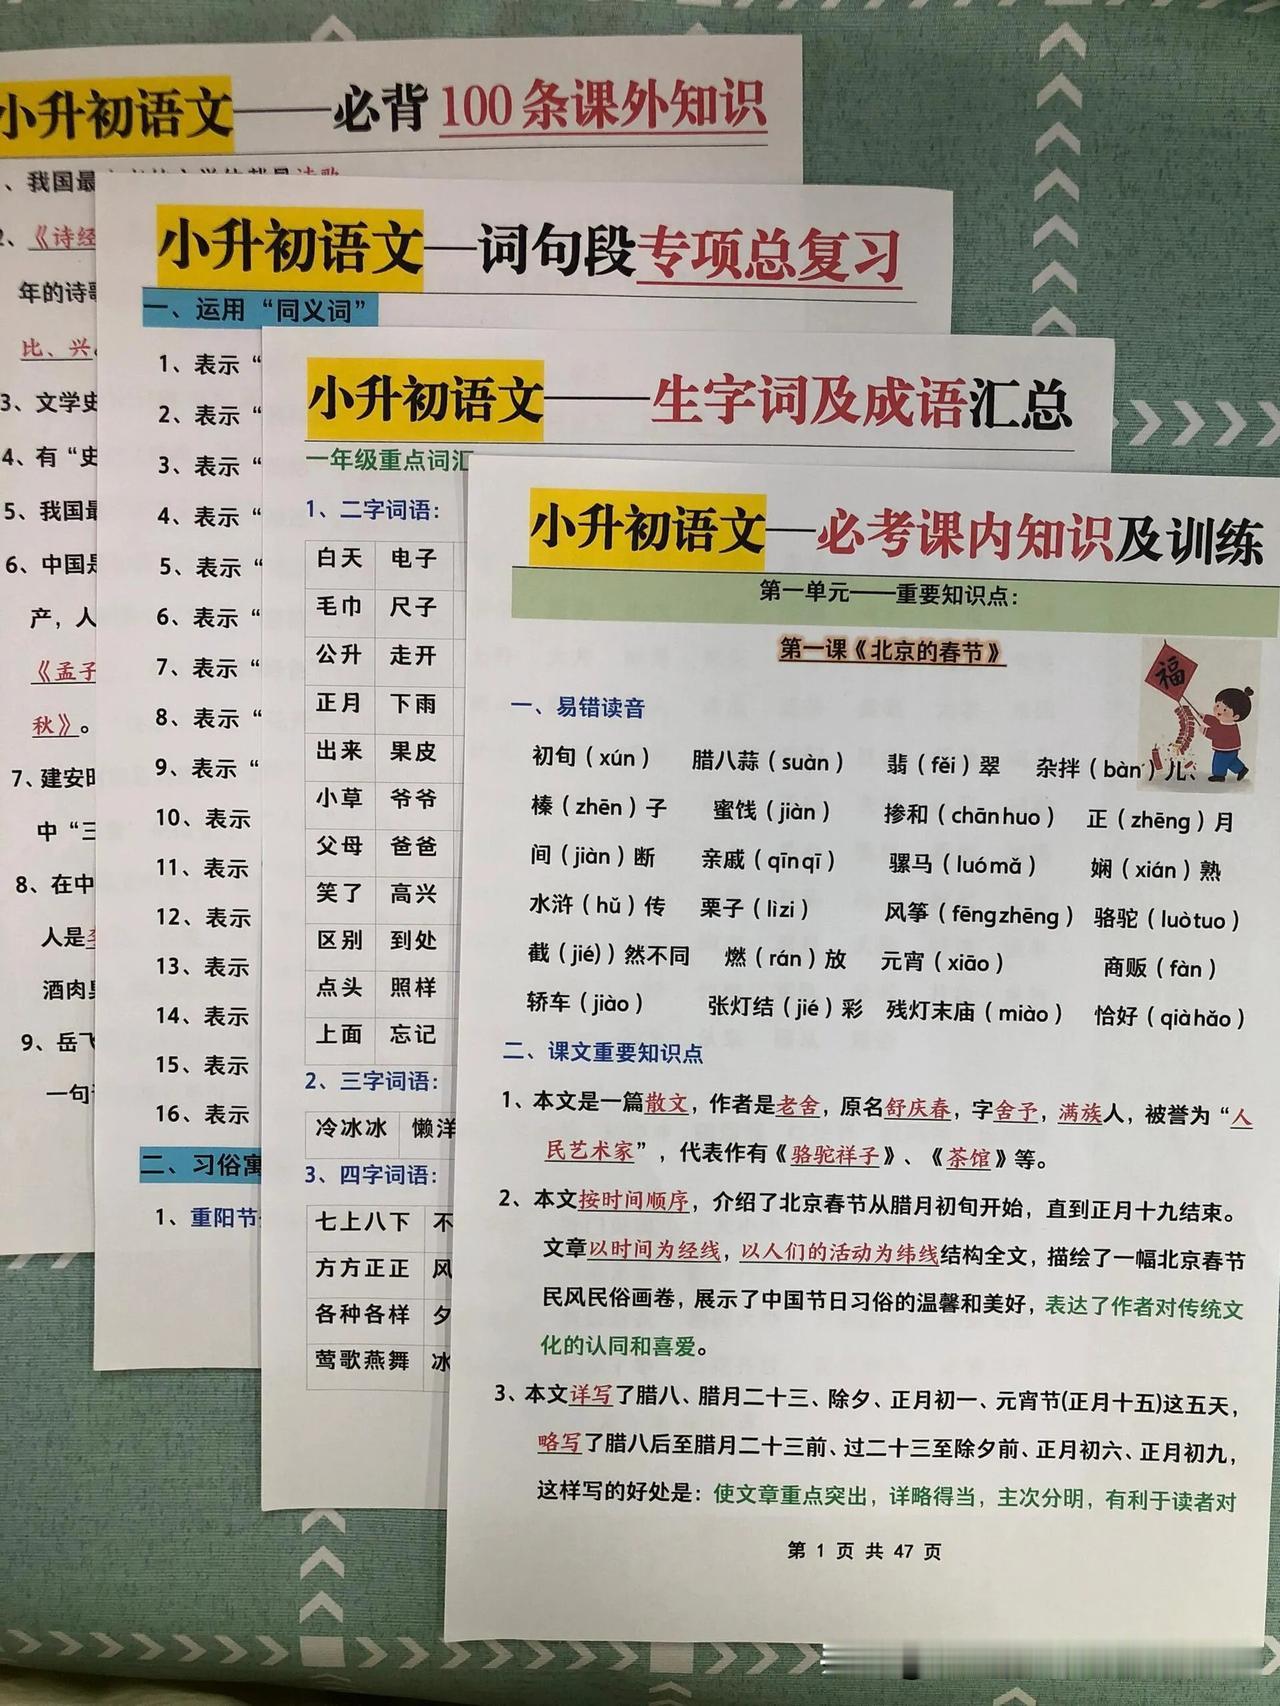 小升初语文——必背100条课外知识
、我国最
2、《诗经
年的诗歌
比、兴。
3、文学史
4、有“史
5、我国最
6、中国是
产，人
《孟子
秋》。
7、建安时
中“三
8、在中
人是李
酒肉臭
9、岳飞
一句
小升初语文—词句段专项总复习
一、运用“同义词”
1、表示“
2、表示“
3、表示“
4、表示“
5、表示“
6、表示“
7、表示“
8、表示“
9、表示“
10、表示
11、表示
12、表示
13、表示
14、表示
15、表示
16、表示
二、习俗寓
1、重阳节
小升初语文——生字词及成语汇总
一年级重点词汇
1、二字词语：
白天 电子
毛巾 尺子
公升 走开
正月 下雨
出来 果皮
小草 爷爷
父母 爸爸
笑了 高兴
区别 到处
点头 照样
上面 忘记
2、三字词语：
冷冰冰 懒洋
3、四字词语：
七上八下 不
方方正正 风
各种各样 夕
莺歌燕舞 冰
小升初语文—必考课内知识及训练
第一单元——重要知识点：
第一课《北京的春节》
福
一、易错读音
初旬（xún） 腊八蒜（suàn） 翡（fěi）翠 杂拌（bàn）儿、
榛（zhēn）子 蜜饯（jiàn） 掺和（chānhuo） 正（zhēng）月
间（jiàn）断 亲戚（qīnqī） 骡马（luómǎ） 娴（xián）熟
水浒（hǔ）传 栗子（lìzi） 风筝（fēngzhēng） 骆驼（luòtuo）
截（jié））然不同 燃（rán）放 元宵（xiāo） 商贩（fàn）
轿车（jiào） 张灯结（jié）彩 残灯末庙（miào） 恰好（qiàhǎo）
二、课文重要知识点
1、本文是一篇散文，作者是老舍，原名舒庆春，字舍予，满族人，被誉为“人
民艺术家”，代表作有《骆驼祥子》、《茶馆》等。
2、本文按时间顺序，介绍了北京春节从腊月初旬开始，直到正月十九结束。
文章以时间为经线，以人们的活动为纬线结构全文，描绘了一幅北京春节
民风民俗画卷，展示了中国节日习俗的温馨和美好，表达了作者对传统文
化的认同和喜爱。
3、本文详写了腊八、腊月二十三、除夕、正月初一、元宵节(正月十五)这五天，
略写了腊八后至腊月二十三前、过二十三至除夕前、正月初六、正月初九，
这样写的好处是：使文章重点突出，详略得当，主次分明，有利于读者对
第 1 页 共 47 页